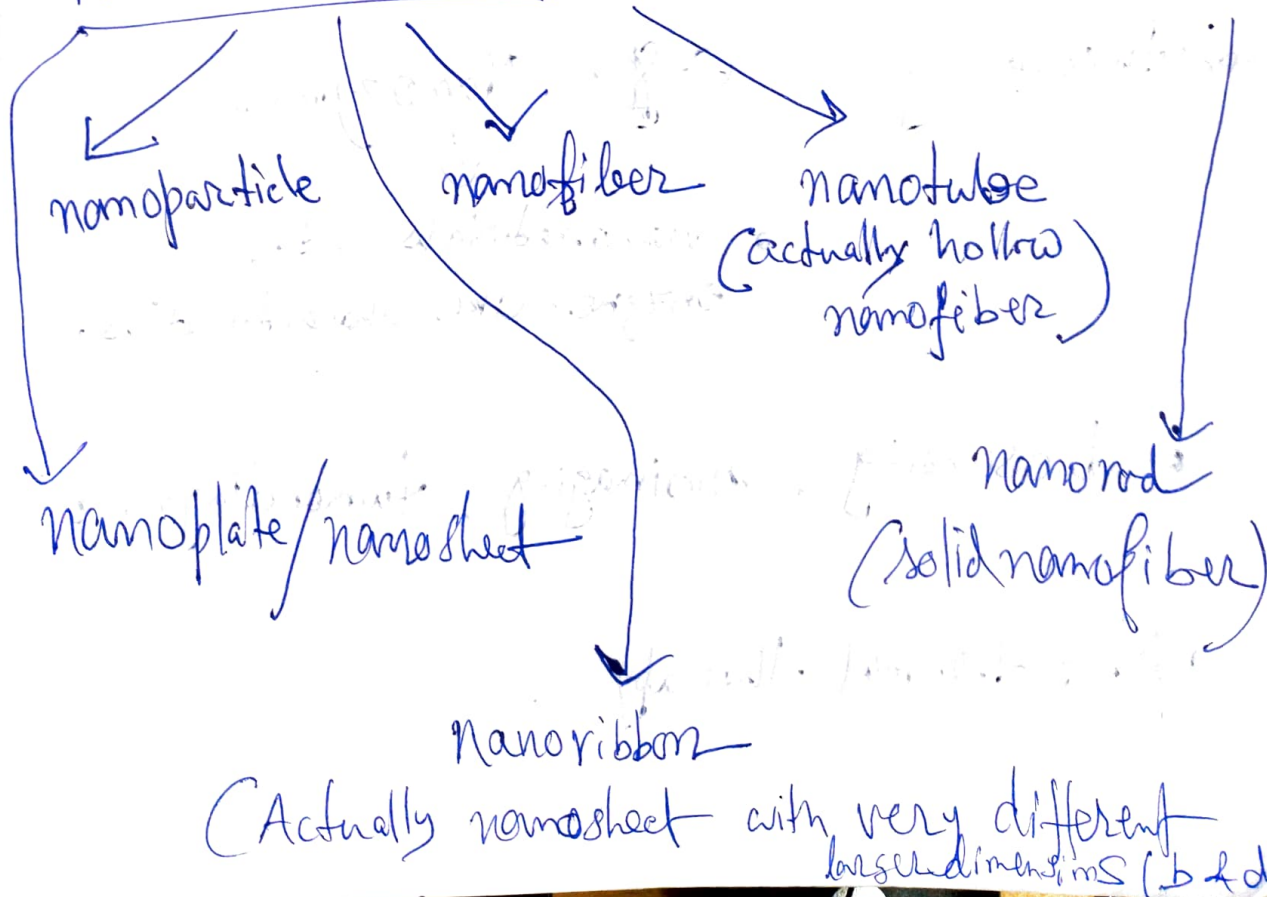 nanoparticle
nanofiber
nanotube
(actually hollow
nanofiber)
nanoplate/nanosheet
nanorod
(solid nanofiber)
Nanoribbon
(Actually nanosheet with very different
larger dimensions (b & d